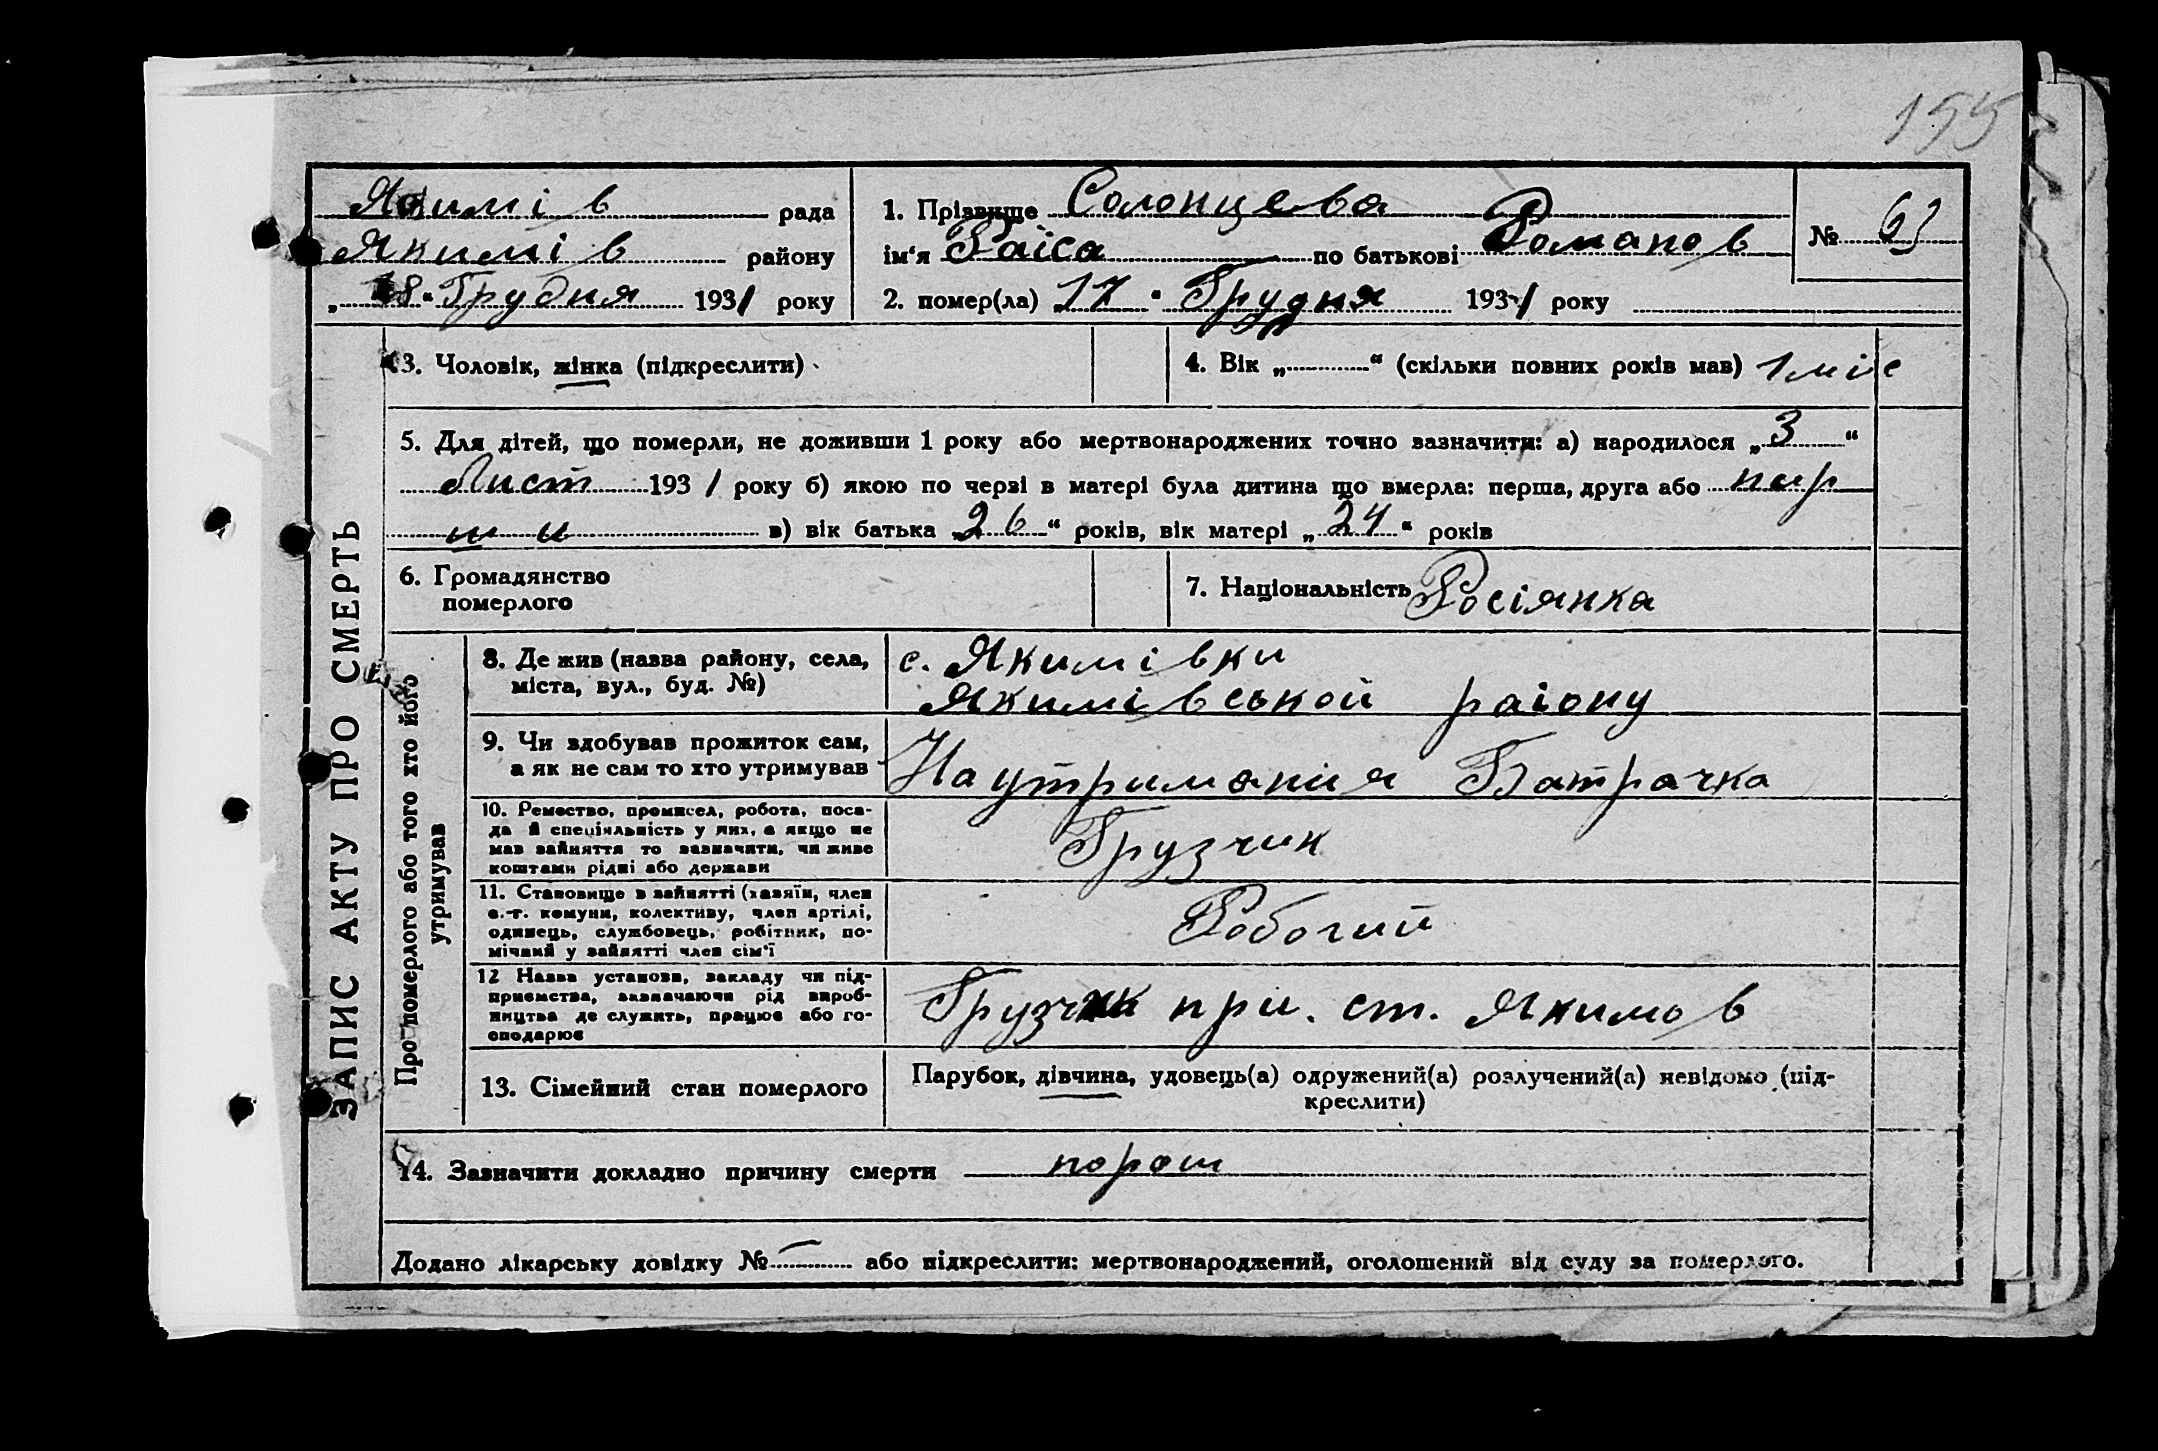 155
Якимів рада
Якимів району
„18“ Грудня 1931 року
1. Прізвище Солонцева
ім'я Раїса по батькові Романов
№ 63
2. помер(ла) „17“ Грудня 1931 року
3. Чоловік, жінка (підкреслити)
4. Вік „ “ (скільки повних років мав) 1 міс
5. Для дітей, що померли, не доживши 1 року або мертвонароджених точно вазначити: а) народилося „3“
Лист 1931 року б) якою по черзі в матері була дитина що вмерла: перша, друга або пер
ши в) вік батька „26“ років, вік матері „24“ років
6. Громадянство
померлого
7. Національність Росіянка
ЗАПИС АКТУ ПРО СМЕРТЬ
Про померлого або того хто його
утримував
8. Де жив (назва району, села,
міста, вул., буд. №)
с. Якимівки
Якимівськой раіону
9. Чи здобував прожиток сам,
а як не сам то хто утримував
На утриманія Батрачка
10. Ремество, промисел, робота, поса-
да й спеціяльність у них, а якщо не
мав зайняття то зазначити, чи живе
коштами рідні або держави
Грузчик
11. Становище в зайнятті (хазяїн, член
с.-г. комуни, колективу, член артілі,
одинець, службовець, робітник, по-
мічний у зайнятті член сім'ї
Робочий
12 Назва установи, закладу чи під-
приємства, зазначаючи рід вироб-
ництва де служить, працює або го-
сподарює
при. ст. Якимов
13. Сімейний стан померлого
Парубок, дівчина, удовець(а) одружений(а) розлучений(а) невідомо (під-
креслити)
14. Зазначити докладно причину смерти порош
Додано лікарську довідку № — або підкреслити: мертвонароджений, оголошений від суду за померлого.